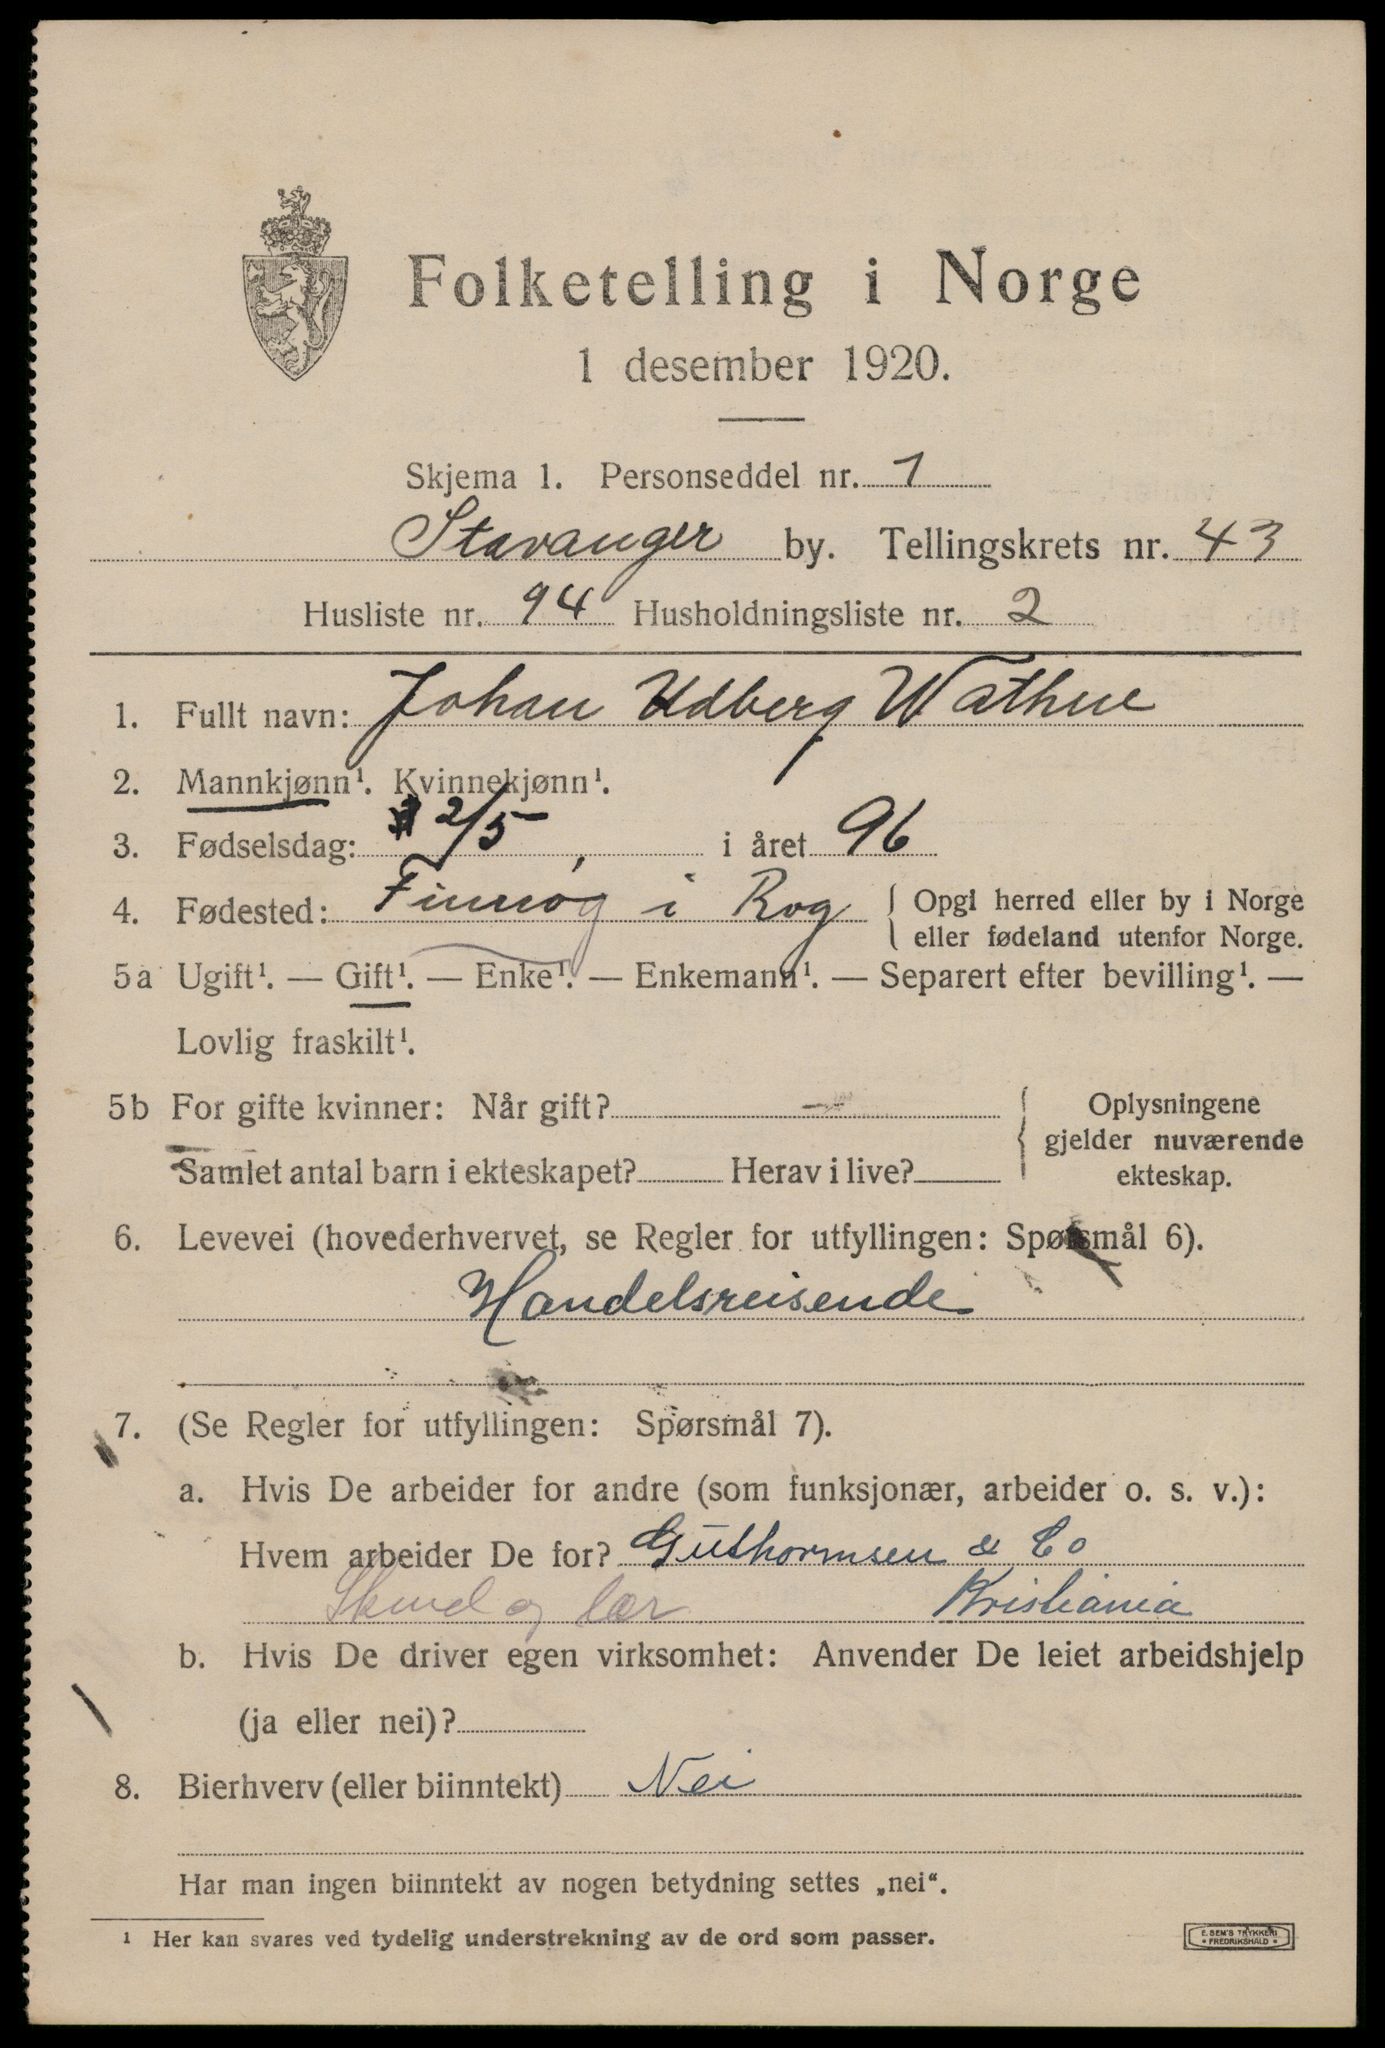 Folketelling i Norge
1 desember 1920.
Skjema 1. Personseddel nr. 1
Stavanger by. Tellingskrets nr. 43
Husliste nr. 94 Husholdningsliste nr. 2
1. Fullt navn: Johan Udberg Wathne
2. Mannkjønn¹. Kvinnekjønn¹.
3. Fødselsdag: 2/5, i året 96
4. Fødested: Finnøy i Rog { Opgi herred eller by i Norge
eller fødeland utenfor Norge.
5a Ugift¹. — Gift¹. — Enke¹. — Enkemann¹. — Separert efter bevilling¹. —
Lovlig fraskilt¹.
5b For gifte kvinner: Når gift? — { Oplysningene
gjelder nuværende
Samlet antal barn i ekteskapet? Herav i live? ekteskap.
6. Levevei (hovederhvervet, se Regler for utfyllingen: Spørsmål 6).
Handelsreisende
7. (Se Regler for utfyllingen: Spørsmål 7).
a. Hvis De arbeider for andre (som funksjonær, arbeider o. s. v.):
Hvem arbeider De for? Guthormsen & Co
Skind og lær Kristiania
b. Hvis De driver egen virksomhet: Anvender De leiet arbeidshjelp
(ja eller nei)?
8. Bierhverv (eller biinntekt) Nei
Har man ingen biinntekt av nogen betydning settes „nei“.
¹ Her kan svares ved tydelig understrekning av de ord som passer.
E. SEM'S TRYKKERI
• FREDRIKSHALD •